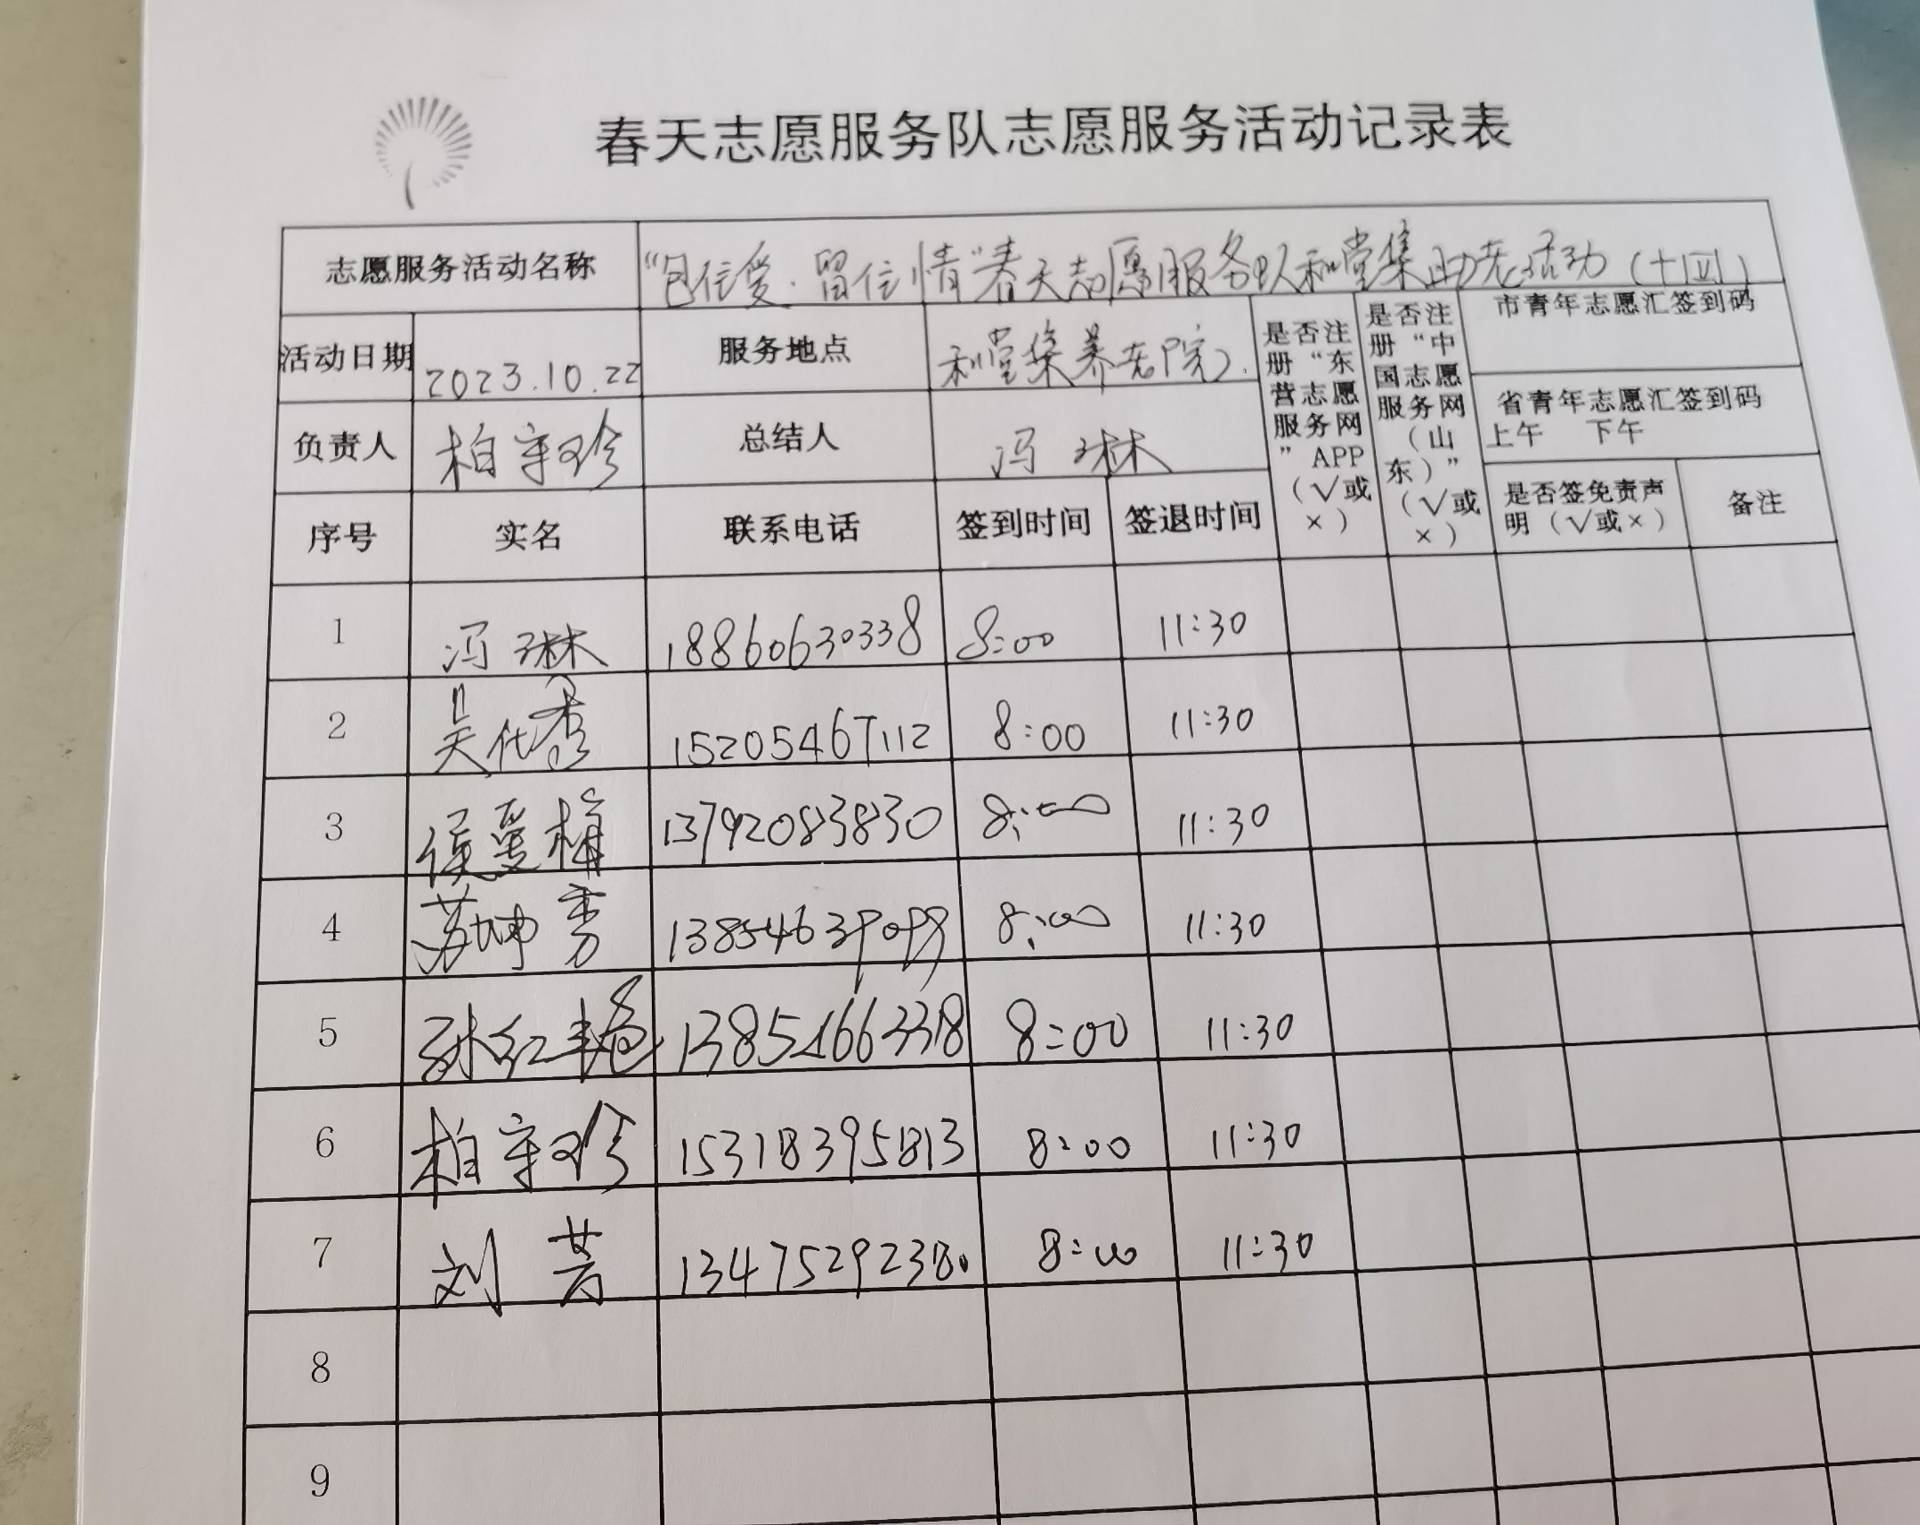 春天志愿服务队志愿服务活动记录表
志愿服务活动名称 “包住爱·留住情”春天志愿服务队和堂集助老活动（十四）
活动日期 2023.10.22 服务地点 和堂集养老院
是否注册“东营志愿服务网”APP（√或×）
是否注册“中国志愿服务网（山东）”（√或×）
市青年志愿汇签到码
省青年志愿汇签到码
上午 下午
负责人 柏 珍 总结人 冯琳
是否签免责声明（√或×） 备注
序号 实名 联系电话 签到时间 签退时间
1 冯琳 18860630338 8:00 11:30
2 吴代秀 15205467112 8:00 11:30
3 侯爱梅 13792083830 8:00 11:30
4 苏坤 8:00 11:30
5 孙红艳 13854663318 8:00 11:30
6 柏 珍 15318395813 8:00 11:30
7 刘芳 13475292380 8:00 11:30
8
9